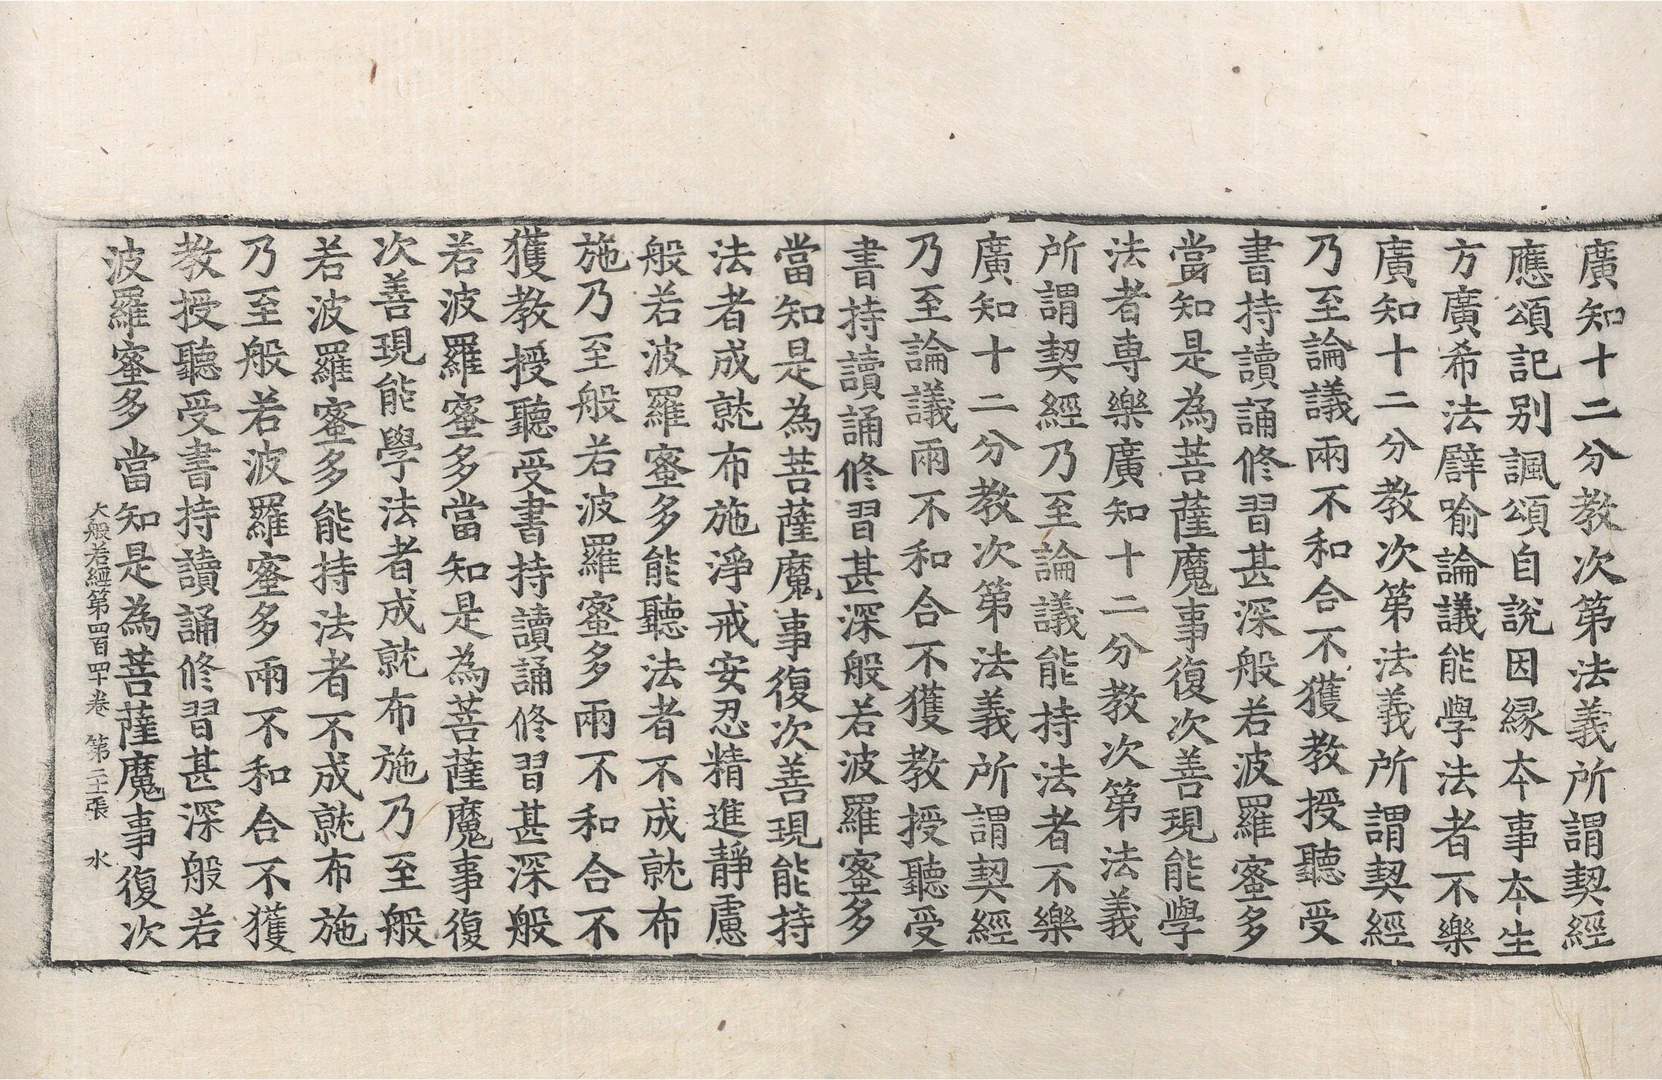 廣知十二分教次第法義所謂契經
應頌記别諷頌自說因緣本事本生
方廣希法譬喻論議能學法者不樂
廣知十二分教次第法義所謂契經
乃至論議兩不和合不獲教授聽受
書持讀誦修習甚深般若波羅蜜多
當知是為菩薩魔事復次善現能學
法者專樂廣知十二分教次第法義
所謂契經乃至論議能持法者不樂
廣知十二分教次第法義所謂契經
乃至論議兩不和合不獲教授聽受
書持讀誦修習甚深般若波羅蜜多
當知是為菩薩魔事復次善現能持
法者成就布施淨戒安忍精進靜慮
般若波羅蜜多能聽法者不成就布
施乃至般若波羅蜜多兩不和合不
獲教授聽受書持讀誦修習甚深般
若波羅蜜多當知是為菩薩魔事復
次善現能學法者成就布施乃至般
若波羅蜜多能持法者不成就布施
乃至般若波羅蜜多兩不和合不獲
教授聽受書持讀誦修習甚深般若
波羅蜜多當知是為菩薩魔事復次
大般若經第四百四十卷 第二十張 水